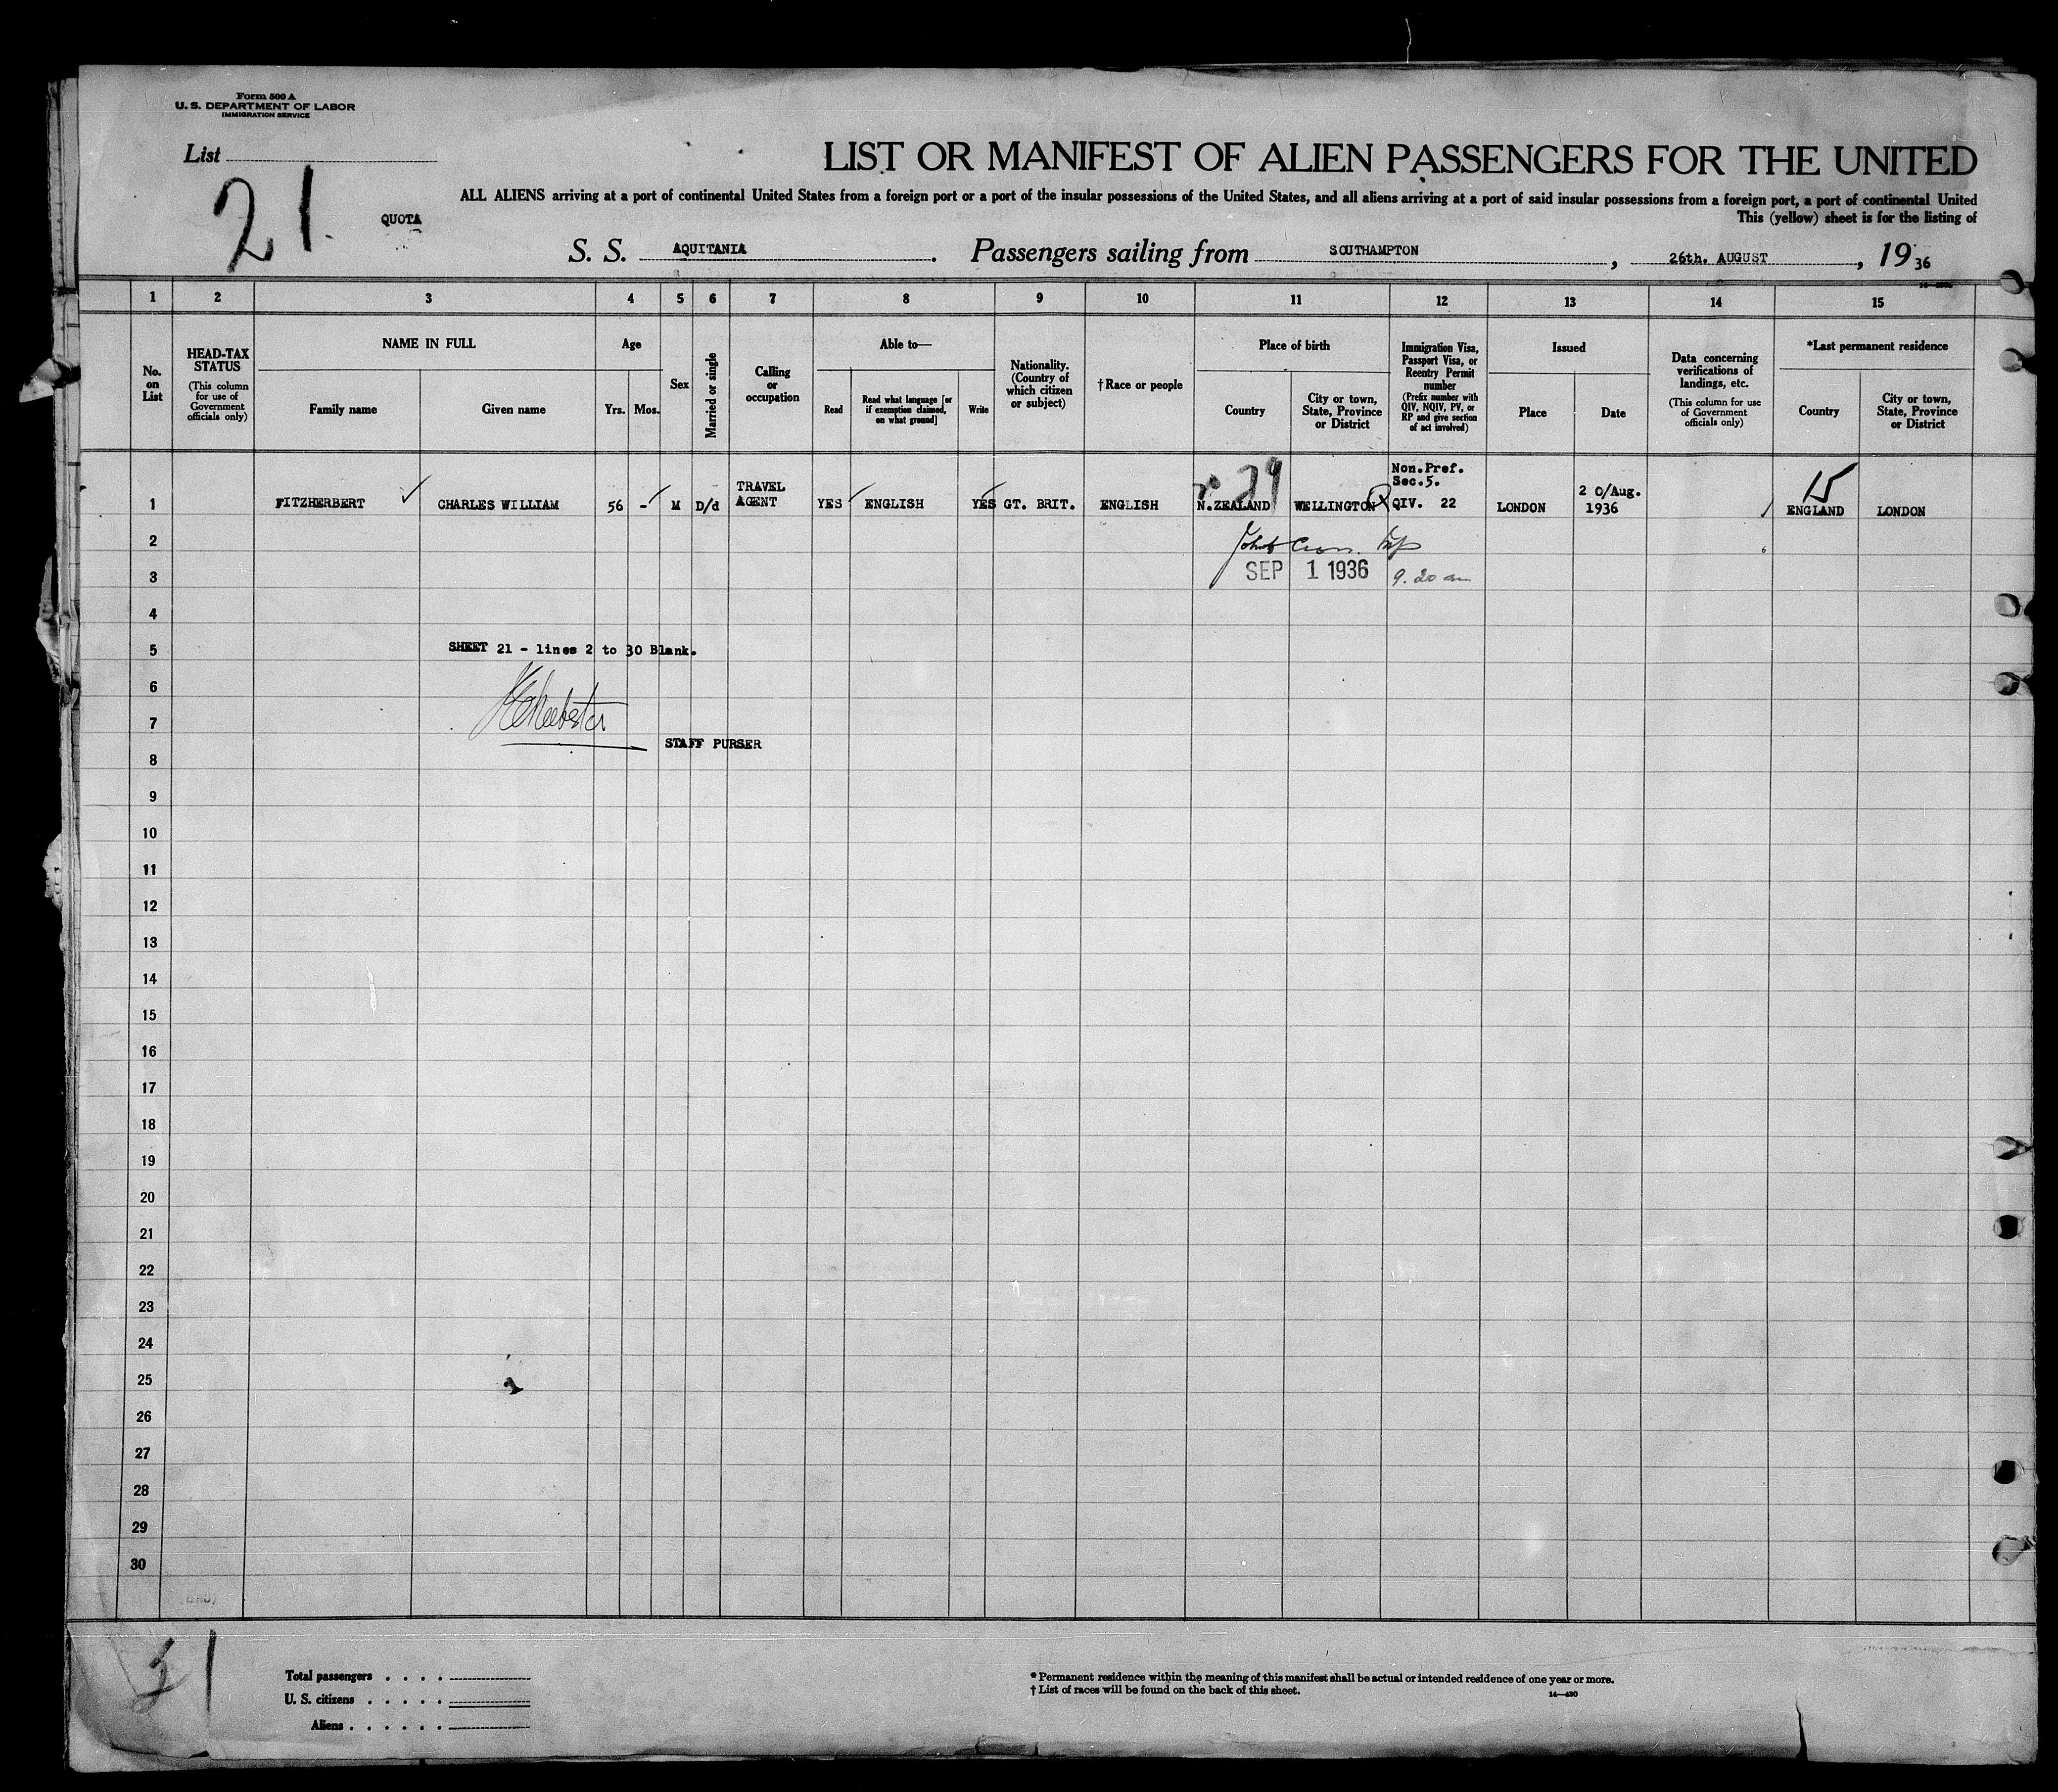 Form 500 A
U. S. DEPARTMENT OF LABOR
IMMIGRATION SERVICE
List
21
QUOTA
LIST OR MANIFEST OF ALIEN PASSENGERS FOR THE UNITED
ALL ALIENS arriving at a port of continental United States from a foreign port or a port of the insular possessions of the United States, and all aliens arriving at a port of said insular possessions from a foreign port, a port of continental United
This (yellow) sheet is for the listing of
S. S. AQUITANIA. Passengers sailing from SOUTHAMPTON, 26th. AUGUST, 1936
1 2 3 4 5 6 7 8 9 10 11 12 13 14 15
No. on List
HEAD-TAX STATUS
(This column for use of Government officials only)
NAME IN FULL
Family name
Given name
Age
Yrs.
Mos.
Sex
Married or single
Calling or occupation
Able to—
Read
Read what language [or if exemption claimed, on what ground]
Write
Nationality. (Country of which citizen or subject)
† Race or people
Place of birth
Country
City or town, State, Province or District
Immigration Visa, Passport Visa, or Reentry Permit number
(Prefix number with QIV, NQIV, PV, or RP and give section of act involved)
Issued
Place
Date
Data concerning verifications of landings, etc.
(This column for use of Government officials only)
*Last permanent residence
Country
City or town, State, Province or District
29
Non.Pref.
Sec.5.
15
1 FITZHERBERT CHARLES WILLIAM 56 - M D/d TRAVEL AGENT YES ENGLISH YES GT. BRIT. ENGLISH N.ZEALAND WELLINGTON QIV. 22 LONDON 2 0/Aug. 1936 ENGLAND LONDON
2
3 SEP 1 1936 9.20 am
4
5 SHEET 21 - lines 2 to 30 Blank.
6
7
STAFF PURSER
8
9
10
11
12
13
14
15
16
17
18
19
20
21
22
23
24
25
26
27
28
29
30
21
Total passengers . . . .
U. S. citizens . . . . .
Aliens . . . . . .
* Permanent residence within the meaning of this manifest shall be actual or intended residence of one year or more.
† List of races will be found on the back of this sheet.
14—430